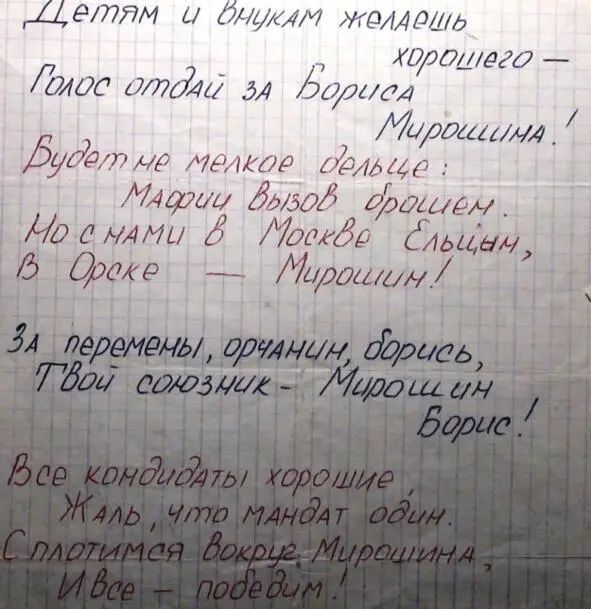 Детям и внукам желаешь
хорошего —
Голос отдай за Бориса
Мирошина!
Будет не мелкое дельце:
Мафии вызов брошен.
Но с нами в Москве Ельцын,
В Орске — Мирошин!
За перемены, орчанин, борись,
Твой союзник - Мирошин
Борис!
Все кондидаты хорошие,
Жаль, что мандат один.
Сплотимся вокруг Мирошина,
И все - победим!